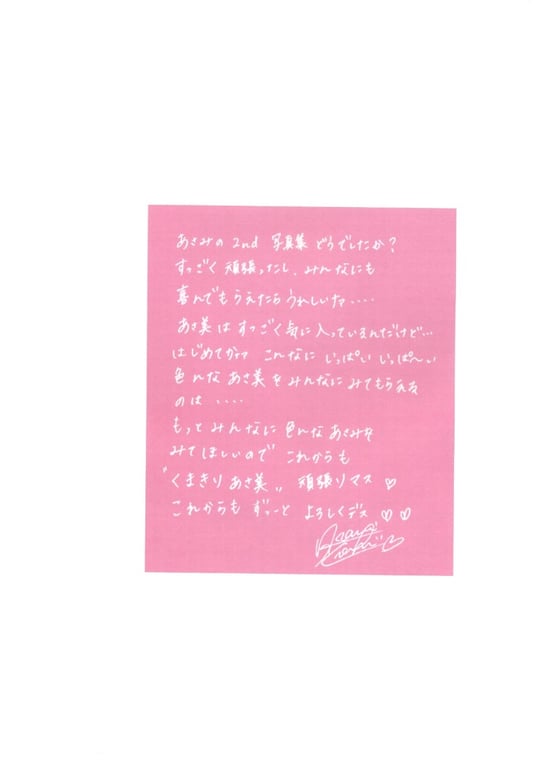 あさみの 2nd 写真集 どうでしたか?
すっごく 頑張ったし、みんなにも
喜んでもらえたら うれしいナァ・・・・
あさ美は すっごく気に入っているんだけど・・・
はじめてかナァ こんなに いっぱい いっぱ〜い
色んな あさ美を みんなに みてもらえる
のは ・・・・
もっと みんなに 色んな あさみを
みてほしいので これからも
"くまきり あさ美" 頑張りマス♡
これからも ずっーと よろしくデス ♡♡